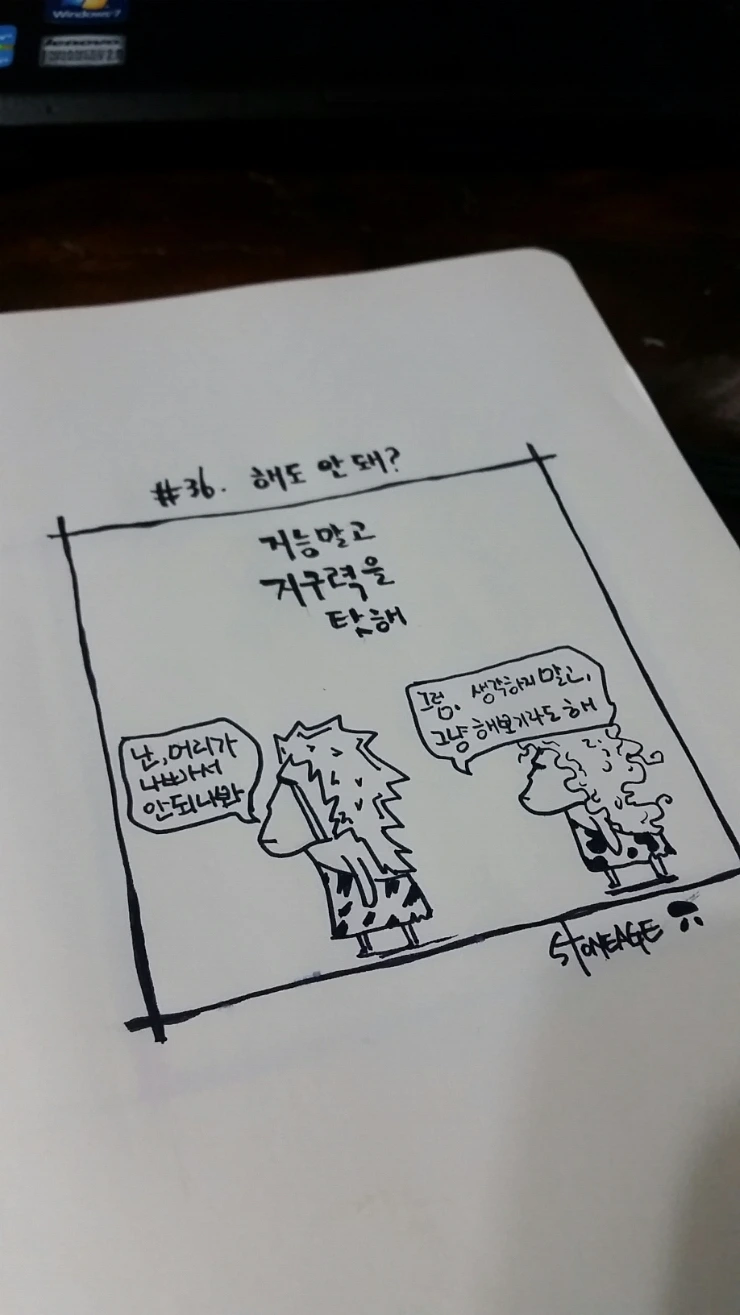 Windows 7
lenovo
#36. 해도 안 돼?
지능말고
지구력을
탓해
난, 머리가
나빠서
안되나봐
그럼, 생각하지 말고,
그냥 해보기라도 해
STONEAGE